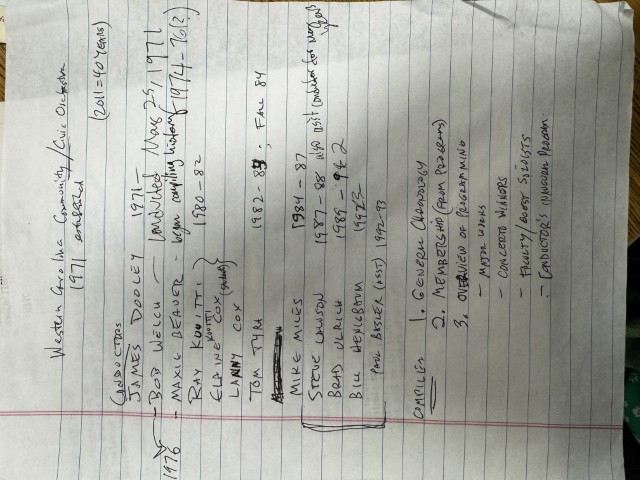 Western Carolina Community/Civic Orchestra
1971 established
(2011=40 YEARS)
CONDUCTORS
JAMES DOOLEY 1971-
BOB WELCH - Conducted May 25, 1971
1976
MAXIE BEAVER - began compiling history (1974-76?)
RAY KOUITTI 1980-82
KOUITTI
ELAINE COX (student)
LANNY COX
TOM TYRA 1982-84; FALL 84
MIKE MILES 1984-87
STEVE LAWSON 1987-88 also asst conductor for many years
BRAD ULRICH 1989-92
BILL HENIGBAUM 1992
PAUL BASLER (ASST) 1992-93
COMPILED
1. GENERAL CHRONOLOGY
2. MEMBERSHIP (FROM PROGRAMS)
3. OVERVIEW OF PROGRAMMING
- MAJOR WORKS
- CONCERTO WINNERS
- FACULTY/GUEST SOLOISTS
- CONDUCTOR'S INAUGURAL PROGRAM